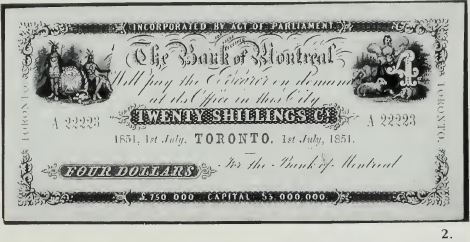 INCORPORATED BY ACT OF PARLIAMENT.
The Bank of Montreal
Will pay the Bearer on demand
at its Office in this City
TWENTY SHILLINGS CY
A 22223
A 22223
4
TORONTO.
TORONTO.
1851, 1st July. TORONTO. 1st July, 1851.
For the Bank of Montreal
FOUR DOLLARS
£.750 000 CAPITAL $3.000.000.
2.